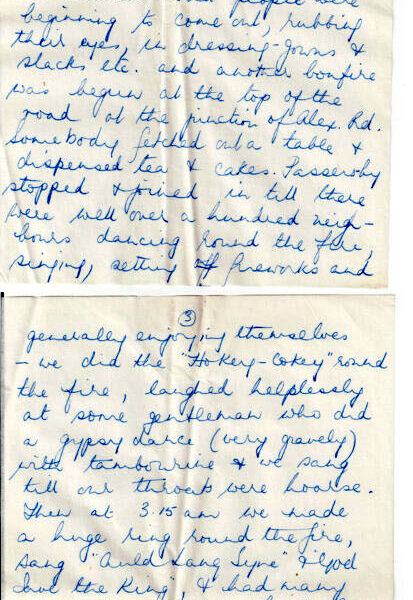 people were
beginning to come out, rubbing
their eyes, in dressing-gowns &
slacks etc. and another bonfire
was begun at the top of the
road at the junction of Alex. Rd.
Somebody fetched out a table &
dispensed tea & cakes. Passersby
stopped & joined in till there
were well over a hundred neigh-
bours dancing round the fire,
singing, setting off fireworks and
3
generally enjoying themselves
- we did the "Hokey-Cokey" round
the fire, laughed helplessly
at some gentleman who did
a gypsy dance (very gravely)
with tambourine & we sang
till our throats were hoarse.
Then at 3.15 am we made
a huge ring round the fire,
sang "Auld Lang Syne" & "God
Save the King", & had many